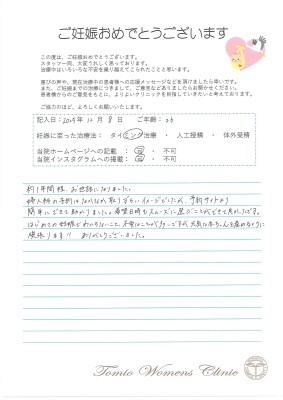 ご妊娠おめでとうございます
この度は、ご妊娠おめでとうございます。
スタッフ一同、大変うれしく思っております。
治療中はいろいろな不安を乗り越えてこられたことと思います。
喜びの声や、現在治療中の患者様への応援メッセージなどを頂けましたら幸いです。
また、ご妊娠までの治療につきまして、ご意見などありましたらお聞かせください。
患者様からのご意見をもとに、よりよいクリニックを目指していきたいと考えております。
ご協力のほど、よろしくお願いいたします。
記入日：2015年 12月 8日 ご年齢：26
妊娠に至った治療法： タイミング治療 ・ 人工授精 ・ 体外受精
当院ホームページへの記載 ： 可 ・ 不可
当院インスタグラムへの掲載 ： 可 ・ 不可
約1年間程、お世話になりました。
婦人科の予約はなかなか取りずらいイメージでしたが、予約サイトより
簡単にできて助かりました。希望日時もスムーズに選ぶことができて良かったです。
はじめての妊娠でわからないこと、不安なことが多いですが、元気な赤ちゃんを産めるように
頑張ります!! ありがとうございました。
Tomio Womens Clinic